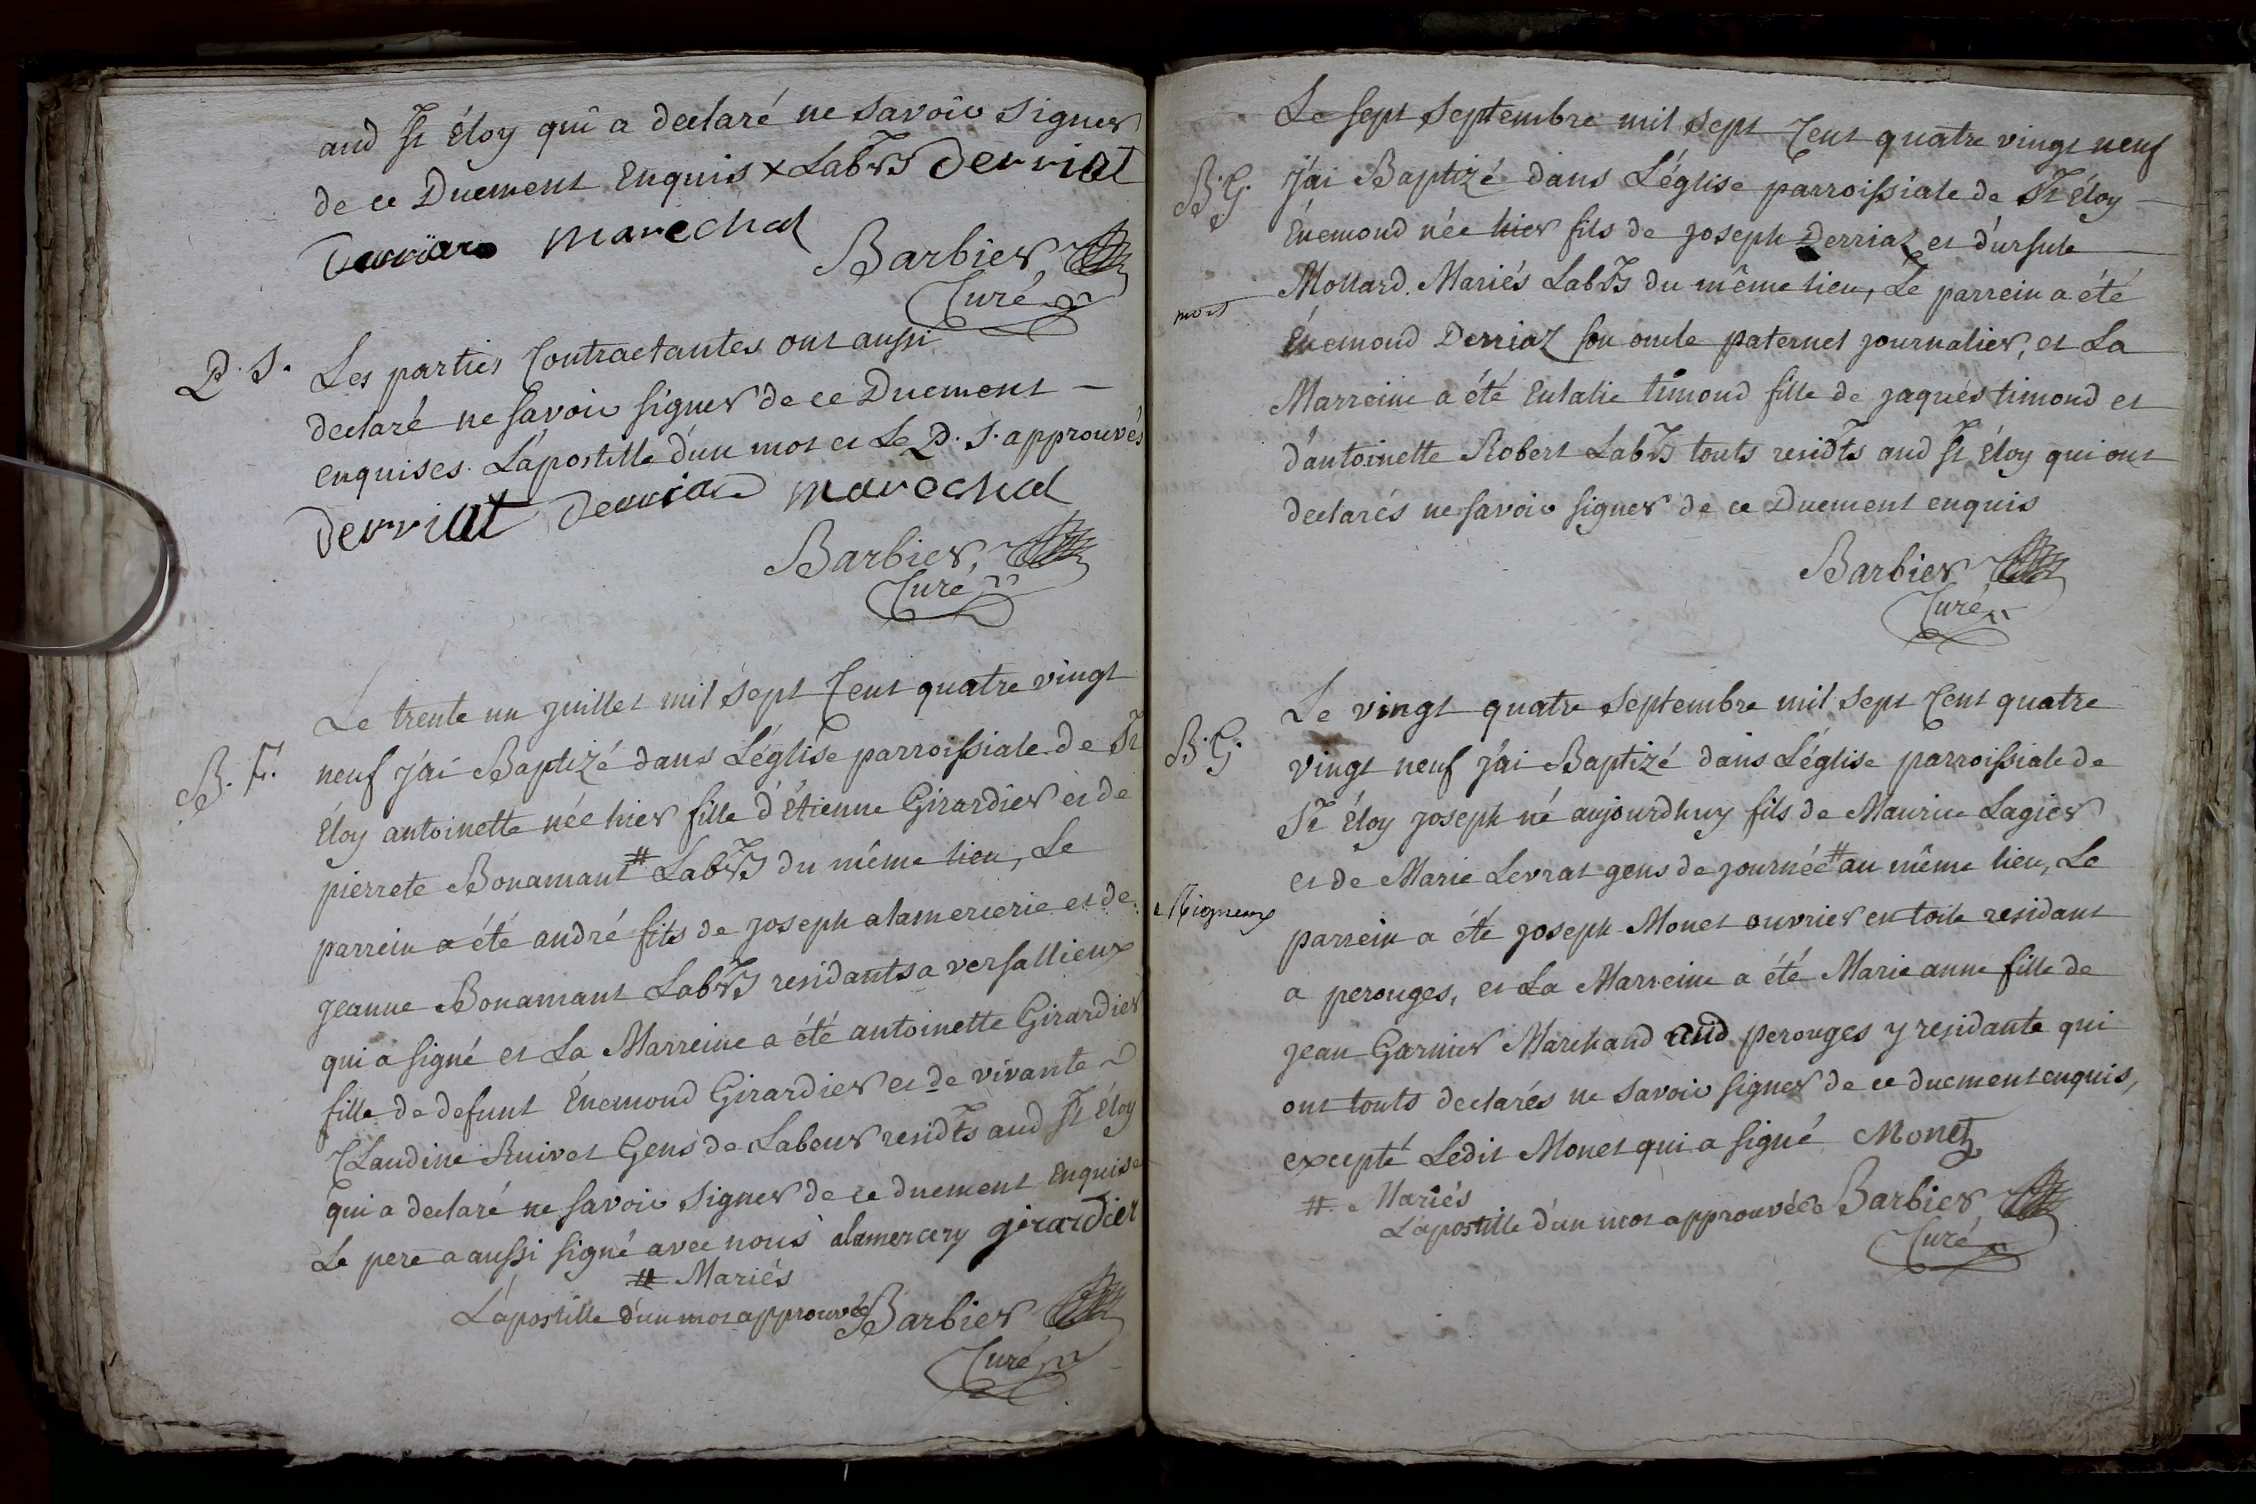 aud St Éloy qui a declaré ne savoir signer
de ce Duement Enquis x Labrs derriat
marechal
Barbier
Curé
P. S. Les parties Contractantes ont aussi
declaré ne savoir signer de ce Duement
enquises. L'apostille d'un mot et Le P. S. approuvés
derriat marechal
Barbier
Curé
Le trente un juillet mil sept Cent quatre vingt
B. F. neuf j'ai Baptizé dans L'église parroissiale de St
Éloy antoinette née hier fille d'Étienne Girardier et de
pierrete Bonamant # Labrs du même lieu, Le
parrein a été andré fils de joseph alamercerie et de
jeanne Bonamant Labrs residants a versallieux
qui a signé et La Marreine a été antoinette Girardier
fille de defunt Énemond Girardier et de vivante
Claudine Ruivet Gens de Labeur residts aud St Éloy
qui a declaré ne savoir signer de ce duement Enquise
Le pere a aussi signé avec nous alamercery girardier
# Mariés
L'apostille d'un mot approuvée Barbier
Curé
Le sept septembre mil sept Cent quatre vingt neuf
B. G. j'ai Baptizé dans L'église parroissiale de St Éloy
Énemond née hier fils de joseph Derriaz et d'ursule
mort Mollard Mariés Labrs du même lieu, Le parrein a été
Énemond Derriaz son oncle paternel journalier, et La
Marreine a été Eulalie timond fille de jaques timond et
d'antoinette Robert Labrs touts residts aud St Éloy qui ont
declarés ne savoir signer de ce Duement enquis
Barbier
Curé
Le vingt quatre septembre mil sept Cent quatre
B. G. vingt neuf j'ai Baptizé dans L'église parroissiale de
St Éloy joseph né aujourdhuy fils de Maurice Lagier
et de Marie Levrat gens de journée # au même lieu, Le
parrein a été joseph Monet ouvrier en toile residant
a perouges, et La Marreine a été Marie anne fille de
jean Garnier Marchand aud perouges y residante qui
ont touts declarés ne savoir signer de ce duement enquis,
excepté Ledit Monet qui a signé Monet
# Mariés
L'apostille d'un mot approuvée Barbier
Curé